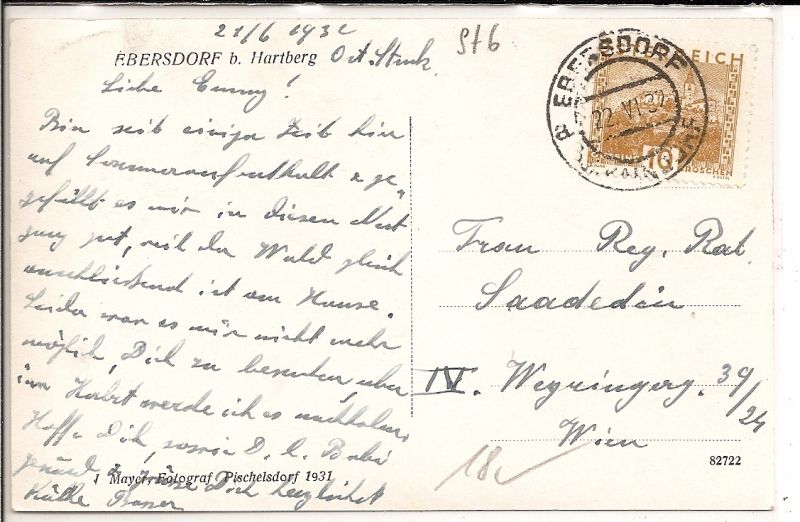 21/6 193
St6
EBERSDORF b. Hartberg Ost. Stmk.
Liebe Emmy!
Bin seit einiger Zeit hier
auf Sommeraufenthalt & ge-
gefällt es mir in diesen Nest
ganz gut, weil der Wald gleich
anschließend ist am Hause.
Leider war es mir nicht mehr
möglich, Dich zu besuchen, aber
im Herbst werde ich es nachholen,
Hoffe Dich, sowie D. l. Bubi
gesund & grüße Dich herzlichst
Käthe
J Mayer, Fotograf Pischelsdorf 1931
EBERSDORF
22.VI.32
ÖSTERREICH
10
GROSCHEN
Frau Reg. Rat.
Saadedin
IV. Weyringerg. 39/24
Wien
18
82722